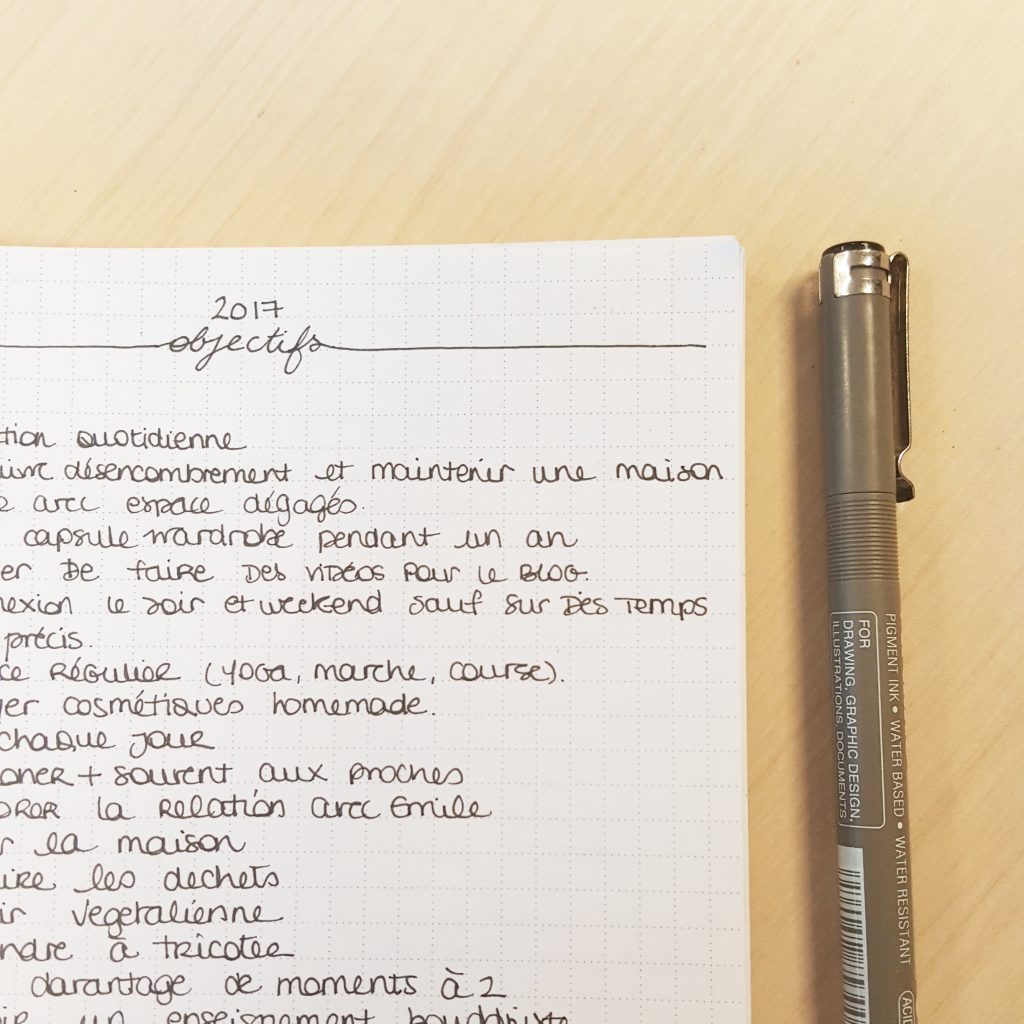 2017
objectifs
tion quotidienne
uivre désencombrement et maintenir une maison
e avec espace dégagés.
capsule wardrobe pendant un an
er de faire des vidéos pour le blog.
nexion le soir et weekend sauf sur des temps
précis.
ce régulier (yoga, marche, course).
yer cosmétiques homemade.
chaque jour
oner + souvent aux proches
orer la relation avec Emile
r la maison
ire les dechets
ir vegetalienne
ndre à tricoter
davantage de moments à 2
un enseignement bouddhiste
PIGMENT INK • WATER BASED • WATER RESISTANT
FOR
DRAWING, GRAPHIC DESIGN,
ILLUSTRATIONS, DOCUMENTS
ACID